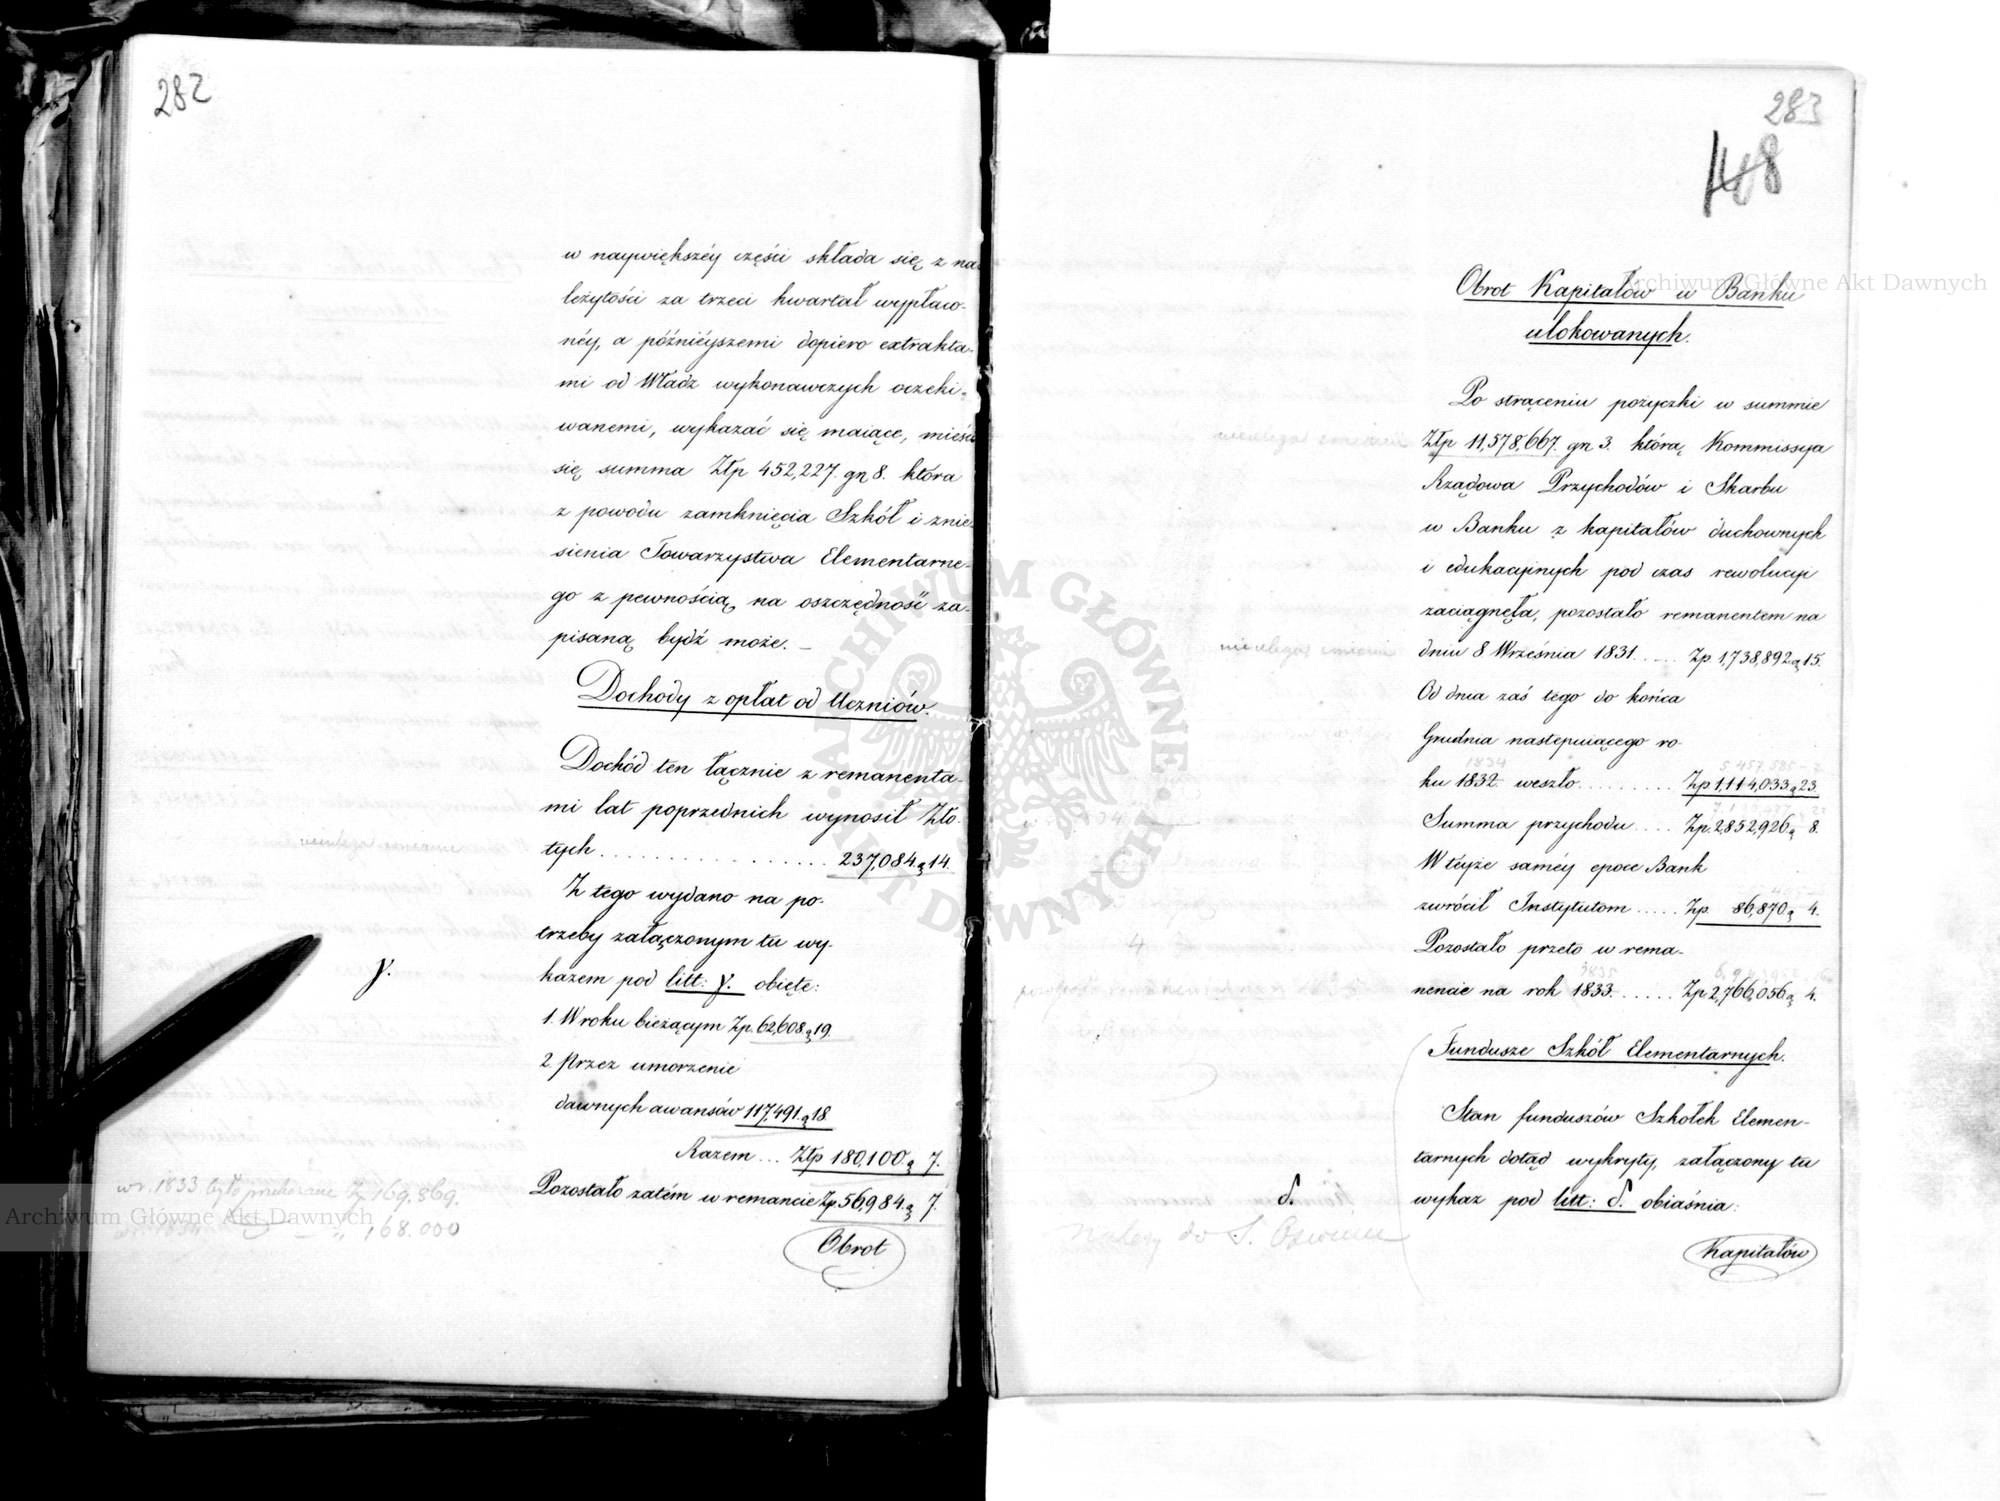 282
w naywiększéy części składa się z na
leżytości za trzeci kwartał wypłaco-
néy, a późniéyszemi dopiero extrakta-
mi od Władz wykonawczych oczeki-
wanemi, wykazać się maiące, mieści
się summa Złp 452,227. gr 8. która
z powodu zamknięcia Szkół i znie-
sienia Towarzystwa Elementarne-
go z pewnością na oszczędność za-
pisaną bydź może. —
Dochody z opłat od Uczniów.
Dochód ten łącznie z remanenta-
mi lat poprzednich wynosił Zło-
tych . . . . . . . . . . . . . . . . 237,084 g 14.
Z tego wydano na po-
trzeby załączonym tu wy-
γ.
kazem pod litt: γ. obięte:
1. W roku bieżącym Zp. 62,608 g 19.
2. Przez umorzenie
dawnych awansów 117,491. g 18
Razem ... Złp 180,100. g 7.
w r. 1833 było Zp 169.869.
Pozostało zatém w remancie Zp. 56,984. g 7.
168.000
Obrot
283
148
Obrot Kapitałów w Banku
ulokowanych.
Po strąceniu pożyczki w summie
Złp 11,578,667. gr 3. którą Kommissya
Rządowa Przychodów i Skarbu
w Banku z kapitałów duchownych
i edukacyinych pod czas rewolucyi
zaciągnęła, pozostało remanentem na
dniu 8 Września 1831. . — . Zp. 1,738,892 g 15.
Od dnia zaś tego do końca
Grudnia nastepuiącego ro-
1834
ku 1832. weszło . . . . . . . . . Zp 1,114,033. g 23.
Summa przychodu . . . . Zp. 2,852,926 g 8.
W téyże saméy epoce Bank
zwrócił Instytutom . . . . . Zp. 86,870 g 4.
Pozostało przeto w rema-
1835
nencie na rok 1833. . . . . . Zp 2,766,056 g 4.
Fundusze Szkół Elementarnych.
Stan funduszów Szkołek Elemen-
tarnych dotąd wykryty, załączony tu
δ.
wykaz pod litt: δ. obiaśnia:
Należy do
Kapitałów
Archiwum Główne Akt Dawnych
Archiwum Główne Akt Dawnych
ARCHIWUM GŁÓWNE AKT DAWNYCH